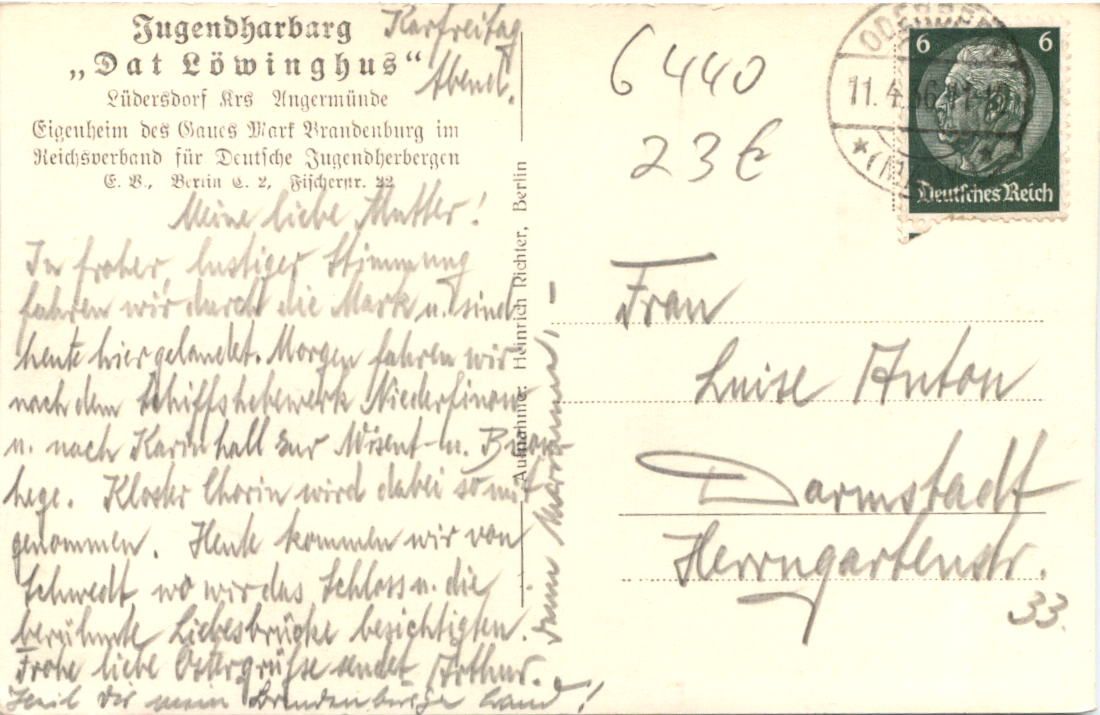 Jugendharbarg
„Dat Löwinghus“
Lüdersdorf Krs Angermünde
Eigenheim des Gaues Mark Brandenburg im
Reichsverband für Deutsche Jugendherbergen
E. V., Berlin C. 2, Fischerstr. 22
Karfreitag
Abend.
Meine liebe Mutter!
In froher, lustiger Stimmung
fahren wir durch die Mark u. sind
heute hier gelandet. Morgen fahren wir
nach dem Schiffshebewerk Niederfinow
u. nach Karinhall zur Wisent- u.
hege. Kloster Chorin wird dabei so mit
genommen. Heute kommen wir von
Schwedt wo wir das Schloss u. die
berühmte Liebesbrücke besichtigten.
Frohe liebe Ostergrüße sendet Arthur.
Heil Dir mein Brandenburger Land!
Aufnahme: Heinrich Richter, Berlin
6440
23 €
11.4.36
6 6
Deutsches Reich
Frau
Luise Anton
Darmstadt
Herrngartenstr.
33.